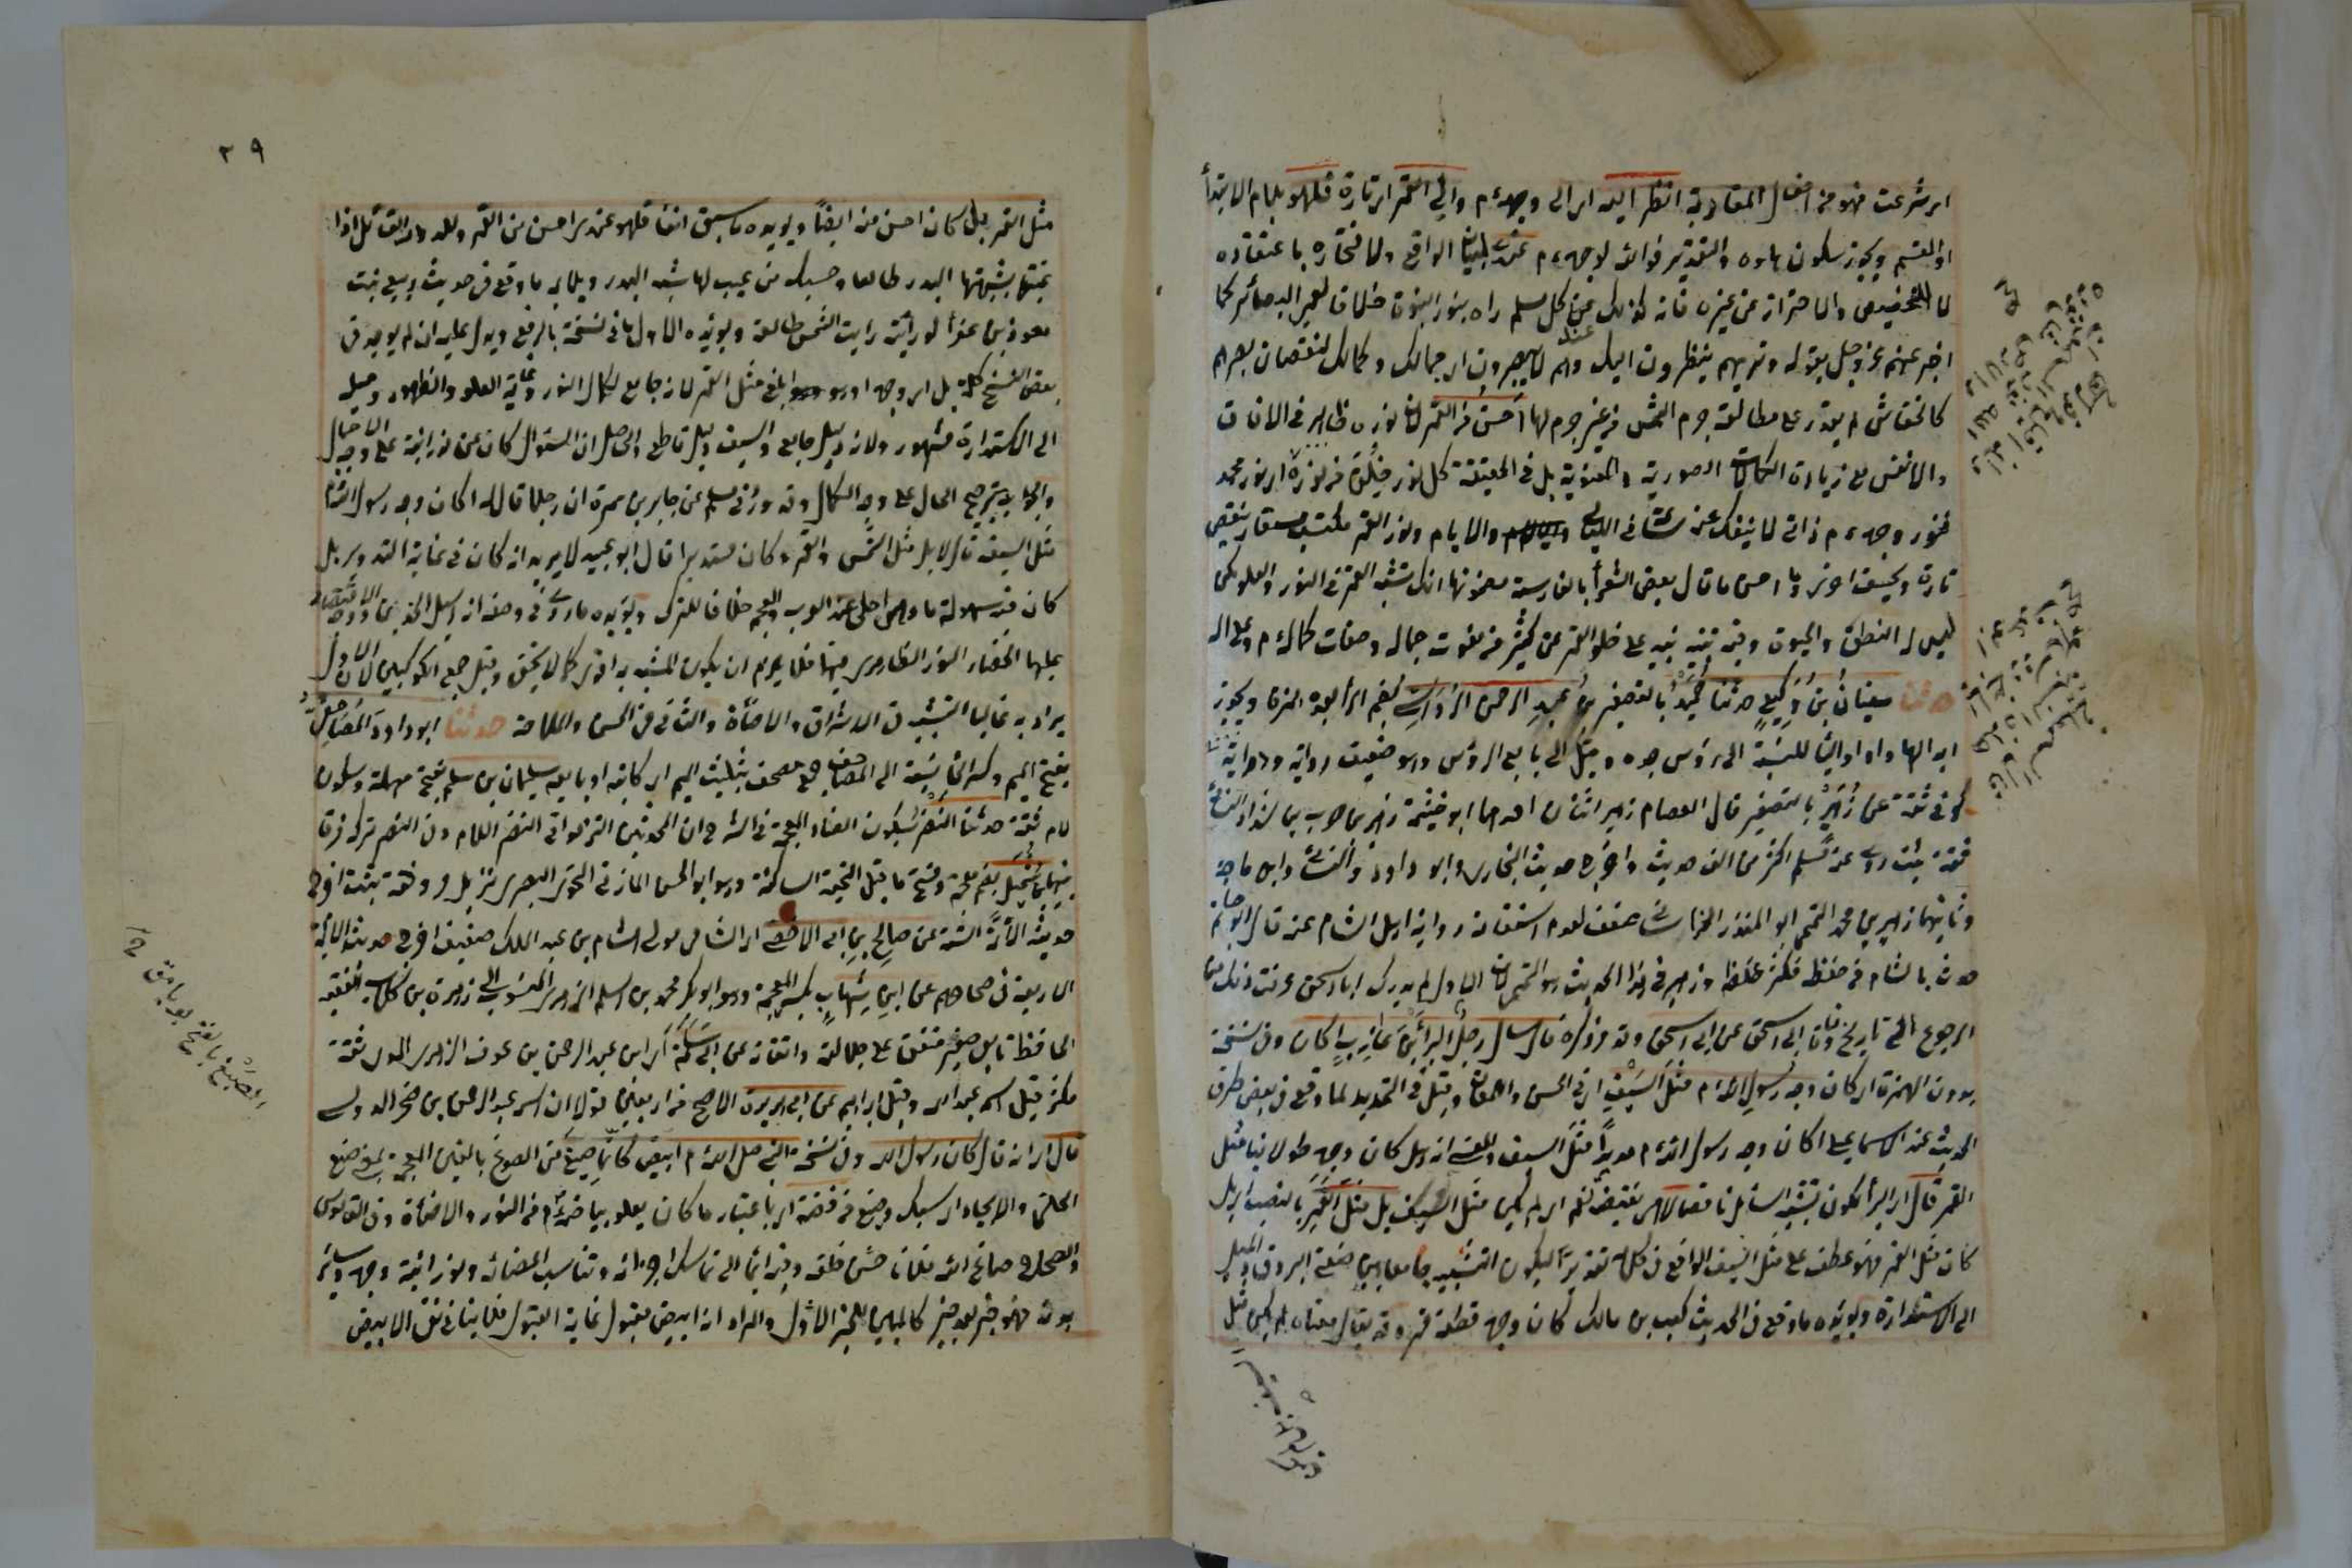 اي شرعت فهو من افعال المقاربة انظر اليه اي الى وجهه م والى القمر اي تارة فلهو بلام الابتدأ
او القسم ويجوز سكون هاوه والتقدير فوالله لوجهه م عندي لبيان الواقع ولافتخاره باعتقاده
لا للتخصيص والاحتراز عن غيره فانه كذلك عند كل مسلم راه بنور النبوة خلاف لعمى البصائر كما
اخبر عنهم عز وجل بقوله وتريهم ينظرون اليك وهم لا يبصرون اي جمالك وكمالك لنقصان بصرهم
كالخفاش لم يقدر على مطالعة جرم الشمس من غير جرم لها احسن من القمر لان نوره ظاهر في الافاق
والانفس مع زيادة الكمالات الصورية والمعنوية بل في الحقيقة كل نور خلق من نوره اي نور محمد
فنور وجهه م ذاتي لا ينفك عنه ساعة في الليالي والايام ونور القمر مكتسب مستعار ينقص
تارة ويخسف اخرى وما احسن ما قال بعض الشعرأ بالفارسية مضمونها انك تشبه القمر في النور والعلو لكن
ليس له النطق والحبور وفيه تنبيه نبيه على خلو القمر عن كثير من نعوت جماله وصفات كماله م وعلى اله
حدثنا سفيان بن وكيع حدثنا حميد بالتصغير بن عبد الرحمن الرؤاسي بضم الرأ بعده همزة ويجوز
ابدالها واوا والياء للنسبة الى رؤس جده وقيل الى بايع الرؤس وهو ضعيف رواية ودراية
كوفي ثقة عن زهير بالتصغير قال العصام زهير اثنان احدهما ابو خيثمة زهير بن حرب بن شداد النسائي
ثقة ثبت روى عنه مسلم اكثر من الف حديث واخرج حديثه البخاري وابو داود والنسائي وابن ماجة
وثانيهما زهير بن محمد التميمي ابو المنذر الخراساني ضعف لعدم استقامة رواية اهل الشام عنه قال ابو حاتم
حدث بالشام من حفظه فكثر غلطه وزهير في هذا الحديث هو التميمي لان الاول لم يدرك ابا اسحق عرفت ذلك من
الرجوع الى تاريخ وفات ابي اسحق عن ابي اسحق وقد مر ذكره قال سأل رجل البرأ بن عازب اكان وفي نسخة
بدون الهمزة اي كان وجه رسول الله م مثل السيف اي في الحسن واللمعان وقيل في التحديد لما وقع في بعض طرق
الحديث عند الاسماعيلي اكان وجه رسول الله م حديدا مثل السيف والمعنى انه هل كان وجهه طولانيا مثل
القمر قال اي البرأ لكون تشبيه السائل ناقصا لا هي نقيض نعم اي لم يكن مثل السيف بل مثل القمر بالنصب اي بل
كان مثل القمر فهو عطف على مثل السيف الواقع في كلامه تقديرا ليكون التشبيه جامعا بين صفتي البروق والميل
الى الاستدارة ويؤيده ما وقع في الحديث كعب بن مالك كان وجهه قطعة قمر وقد يقال معناه لم يكن مثل
٣٩
مثل القمر بل كان احسن منه ايضا ويؤيده ما سبق انفا فلهو عندي احسن من القمر ولله در القائل اذا
عبتها شبهتها البدر طالعا وحسبك من عيب لها شبه البدر ويلايم ما وقع في حديث ربيع بنت
معوذ بن عفرأ لو رأيته رايت الشمس طالعة ويؤيده الاول ما في نسخة بالرفع ويدل عليه ان لم يوجد في
بعض النسخ كلمة بل اي وجهه او هو ابلغ مثل القمر لانه جامع لكمال النور وغاية العلو والظهور وميله
الى الاستدارة مشهور ولانه دليل جامع والسيف دليل قاطع والحاصل ان السؤال كان عن نورانيته على وجه الاجمال
والجواب بترجيح الحال على وجه الكمال وقد ورد في مسلم عن جابر بن سمرة ان رجلا قال له اكان وجه رسول الله م
مثل السيف قال لا بل مثل الشمس والقمر وكان مستديرا قال ابو عبيد لا يريد انه كان في غاية التدوير بل
كان فيه سهولة ما وهي احلى عند العرب والعجم خلافا للترك ويؤيده ما روي في وصفه انه اسيل الخدين
عليها انحصار النور الظاهري فيهما فلا يلزم ان يكون المشبه به اقوى كما لا يخفى وقيل جمع الكوكبين لان الاول
يراد به غالبا التشبيه في الاشراق والاضأة والثاني في الحسن والملاحة حدثنا ابو داود المصاحفي
بفتح الميم وكسر الحاء نسبة الى المصاحف جمع مصحف بتثليث الميم اي كاتبه او بايعه سليمان بن سلم بفتح مهملة وسكون
لام ثقة حدثنا النضر بسكون الضاد المعجمة في الشرح ان المحدثين التزموا في النضر اللام وفي النصر تركه فرقا
بينهما بن شميل بضم معجمة وفتح ما قبل التحتية الساكنة وهو ابو الحسن المازني النحوي البصري نزيل مرو ثقة ثبت اخرج
حديثه الائمة الستة عن صالح بن ابي الاخضر اي الشامي مولى هشام بن عبد الملك ضعيف اخرج حديثه الائمة
الاربعة في صحاحهم عن ابن شهاب بكسر المعجمة وهو ابو بكر محمد بن اسلم الزهري المنسوب الى زهرة بن كلاب الفقيه
الحافظ تابعي صغير متفق على جلالته واتقانه عن ابي سلمة اي ابن عبد الرحمن بن عوف الزهري المدني ثقة
مكثر قيل اسمه عبد الله وقيل ابراهيم عن ابي هريرة الاصح من اربعين قولا ان اسمه عبد الرحمن بن صخر الدوسي
قال اي انه قال كان رسول الله وفي نسخة النبي صلى الله م ابيض كانما صيغ من الصوغ بالغين المعجمة بمعنى صنع
الحلي والايجاد اي سبك وصنع من فضة اي باعتبار ما كان يعلو بياضه م من النور والاضأة وفي القاموس
والصحاح صاغ الله فلانا حسن خلقه وفيه ايماء الى تماسك اجزائه وتناسب اعضائه ونورانية وجهه وسائر
بدنه فهو خبر بعد خبر كالمبين للخبر الاول والمراد انه ابيض مقبول غاية القبول فلا ينافي نفي الابيض